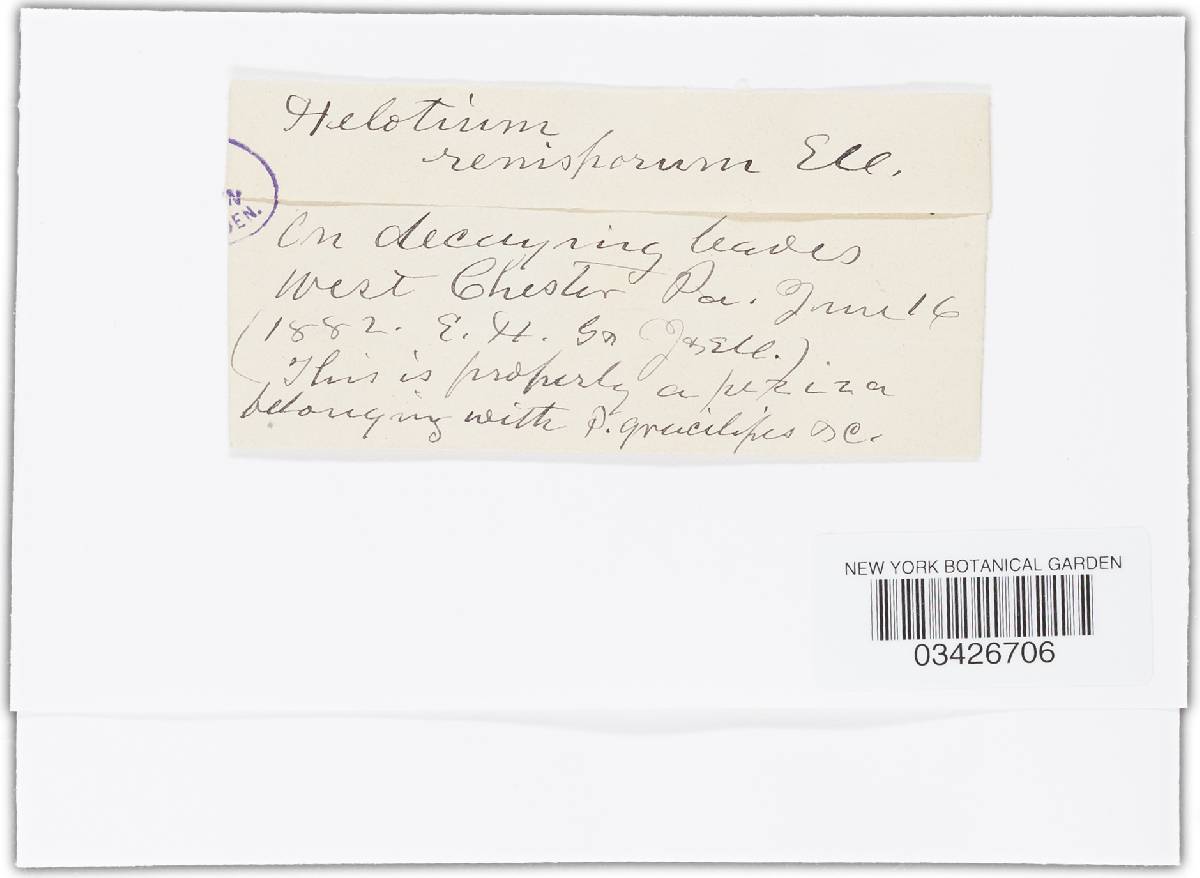 Helotium
renisporum Ell.
On decaying leaves
West Chester Pa. June 16
1882. E. H. Ell.)
(This is properly a peziza
belonging with P. gracilipes &c.
N
DEN.
NEW YORK BOTANICAL GARDEN
03426706